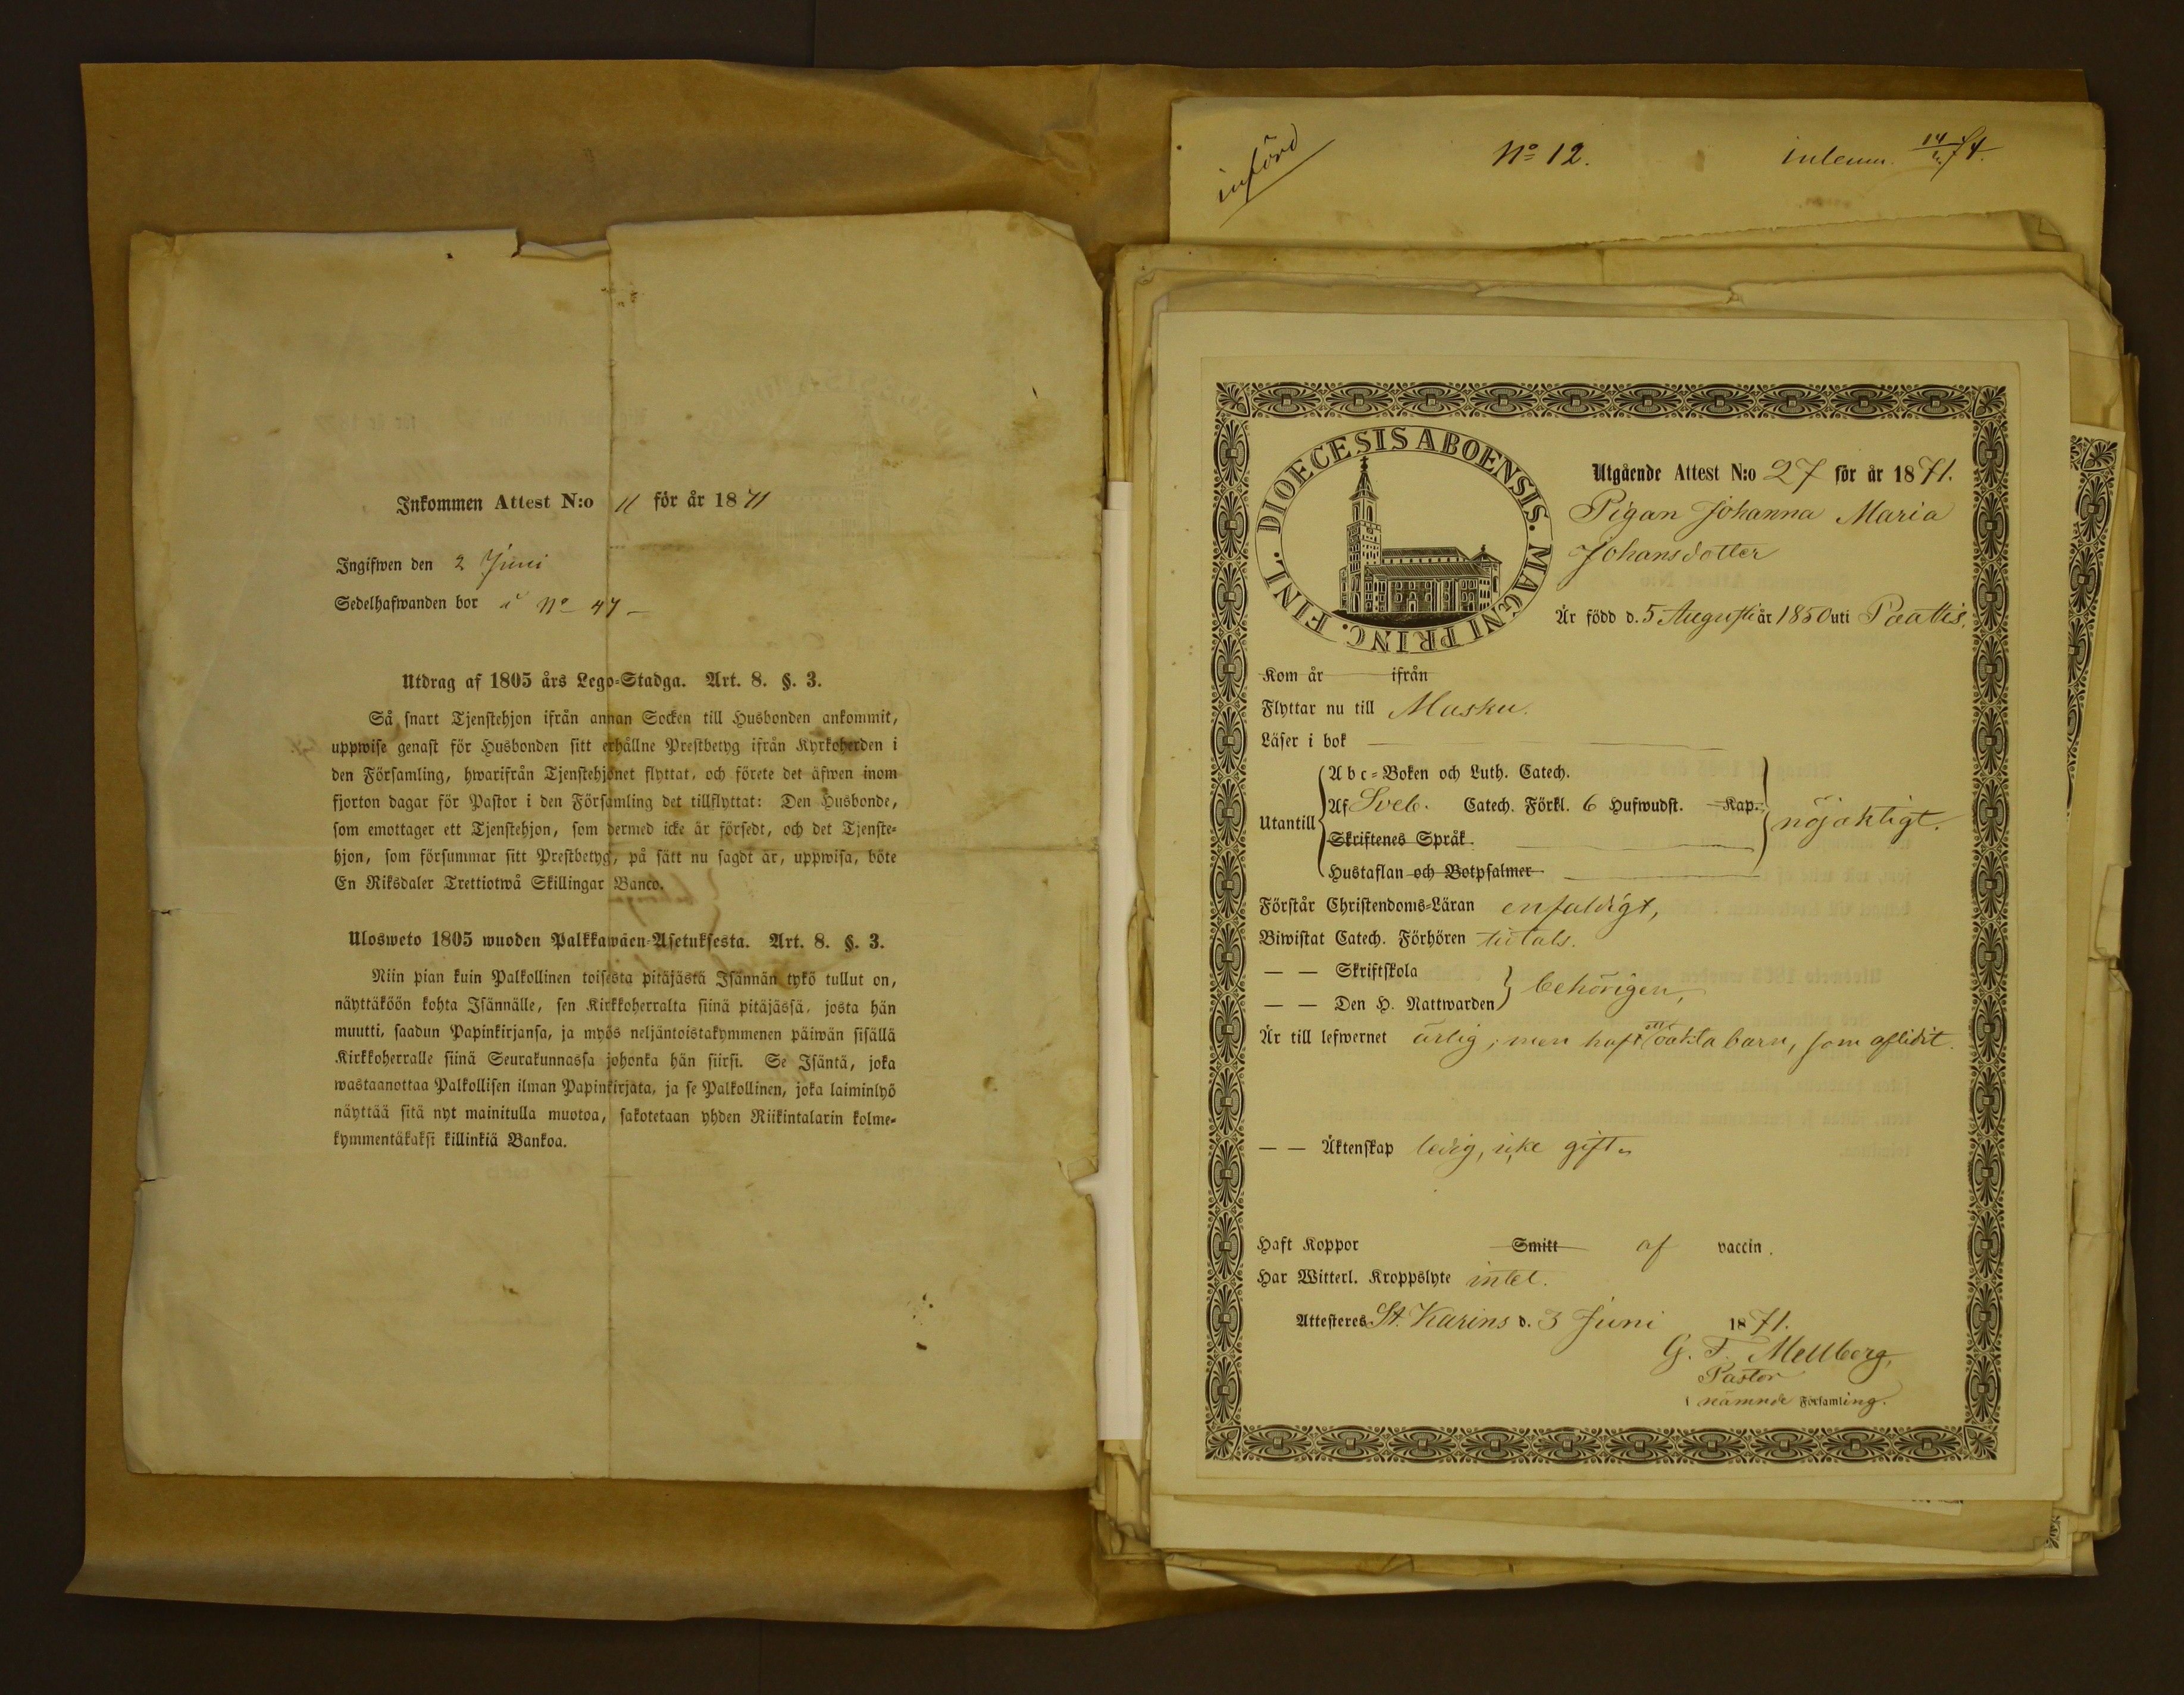 Inkommen Attest N:o 11 för år 1871
Ingifwen den 2 Juni
Sedelhafwanden bor i No 47
Utdrag af 1805 års Lego-Stadga. Art. 8. §. 3.
Så snart Tjenstehjon ifrån annan Socken till Husbonden ankommit,
uppwise genast för Husbonden sitt erhållne Prestbetyg ifrån Kyrkoherden i
den Församling, hwarifrån Tjenstehjonet flyttat, och förete det äfwen inom
fjorton dagar för Pastor i den Församling det tillflyttat: Den Husbonde,
som emottager ett Tjenstehjon, som dermed icke är försedt, och det Tjenste-
hjon, som försummar sitt Prestbetyg, på sätt nu sagdt är, uppwisa, böte
En Riksdaler Trettiotwå Skillingar Banco.
Ulosweto 1805 wuoden Palkkawäen-Asetuksesta. Art. 8. §. 3.
Niin pian kuin Palkollinen toisesta pitäjästä Isännän tykö tullut on,
näyttäköön kohta Isännälle, sen Kirkkoherralta siinä pitäjässä, josta hän
muutti, saadun Papinkirjansa, ja myös neljäntoistakymmenen päiwän sisällä
Kirkkoherralle siinä Seurakunnassa johonka hän siirsi. Se Isäntä, joka
wastaanottaa Palkollisen ilman Papinkirjata, ja se Palkollinen, joka laiminlyö
näyttää sitä nyt mainitulla muotoa, sakotetaan yhden Riikintalarin kolme-
kymmentäkaksi killinkiä Bankoa.
införd
No 12.
inlemn. 74.
DIOECESIS ABOENSIS. MAGNI PRINC. FINL.
Utgående Attest N:o 27 för år 1871.
Pigan Johanna Maria
Johansdotter
Är född d. 5 Augusti år 1850 uti Paattis,
Kom år ifrån
Flyttar nu till Masku.
Läser i bok
Utantill
Abc-Boken och Luth. Catech.
Af Sveb. Catech. Förkl. 6 Hufwudst. Kap.
Skriftenes Språk
Hustaflan och Botpsalmer
nöjaktigt.
Förstår Christendoms-Läran enfaldigt,
Biwistat Catech. Förhören titals.
— — Skriftskola
— — Den H. Nattwarden
behörigen,
Är till lefwernet ärlig; men haft ett oäkta barn, som aflidit.
— — Äktenskap ledig, icke gift
Haft Koppor Smitt af vaccin.
Har Witterl. Kroppslyte intet.
Attesteres St. Karins d. 3 Juni 1871.
G. F. Mellberg,
Pastor
i nämnde Församling.